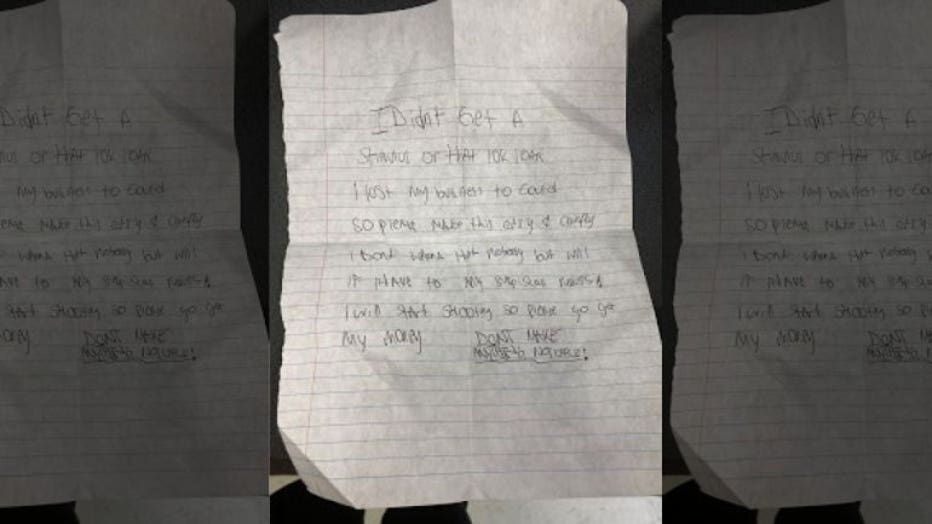 I Didnt Get A
Stimulus or that 10k loan
I lost my business to Covid
So please make this easy &
I Dont wanna Hurt nobody but will
if I Have to My
I will start shooting so please go get
My Money DONT MAKE
NOISE!